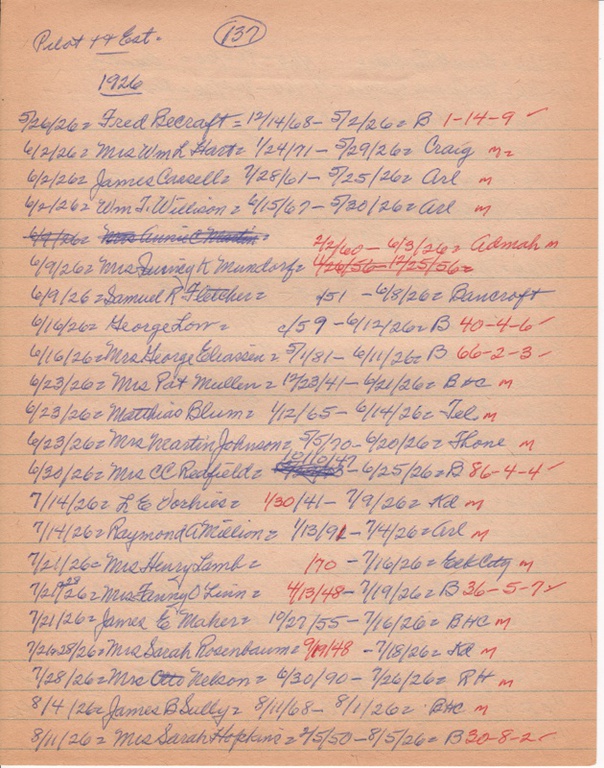 Pilot & Est= 137
1926
5/26/26= Fred Becraft= 12/14/68- 5/2/26= B 1-14-9
6/2/26= Mrs Wm L Hart= 1/24/71- 5/29/26= Craig m
6/2/26= James Cassell= 7/28/61- 5/25/26= Arl m
6/2/26= Wm T. Willison= 6/15/67- 5/30/26= Arl m
6/9/26= Mrs Annie C Martin=
2/2/60- 6/3/26= Admah m
6/9/26= Mrs Jurney K Mundorf= 4/26/56- 12/25/56=
6/9/26= Samuel R Fletcher= c/51 -6/8/26= Bancroft
6/16/26= George Low= c/59 -6/12/26= B 40-4-6
6/16/26= Mrs George Eliassen= 5/1/81- 6/11/26= B 66-2-3
6/23/26= Mrs Pat Mullen= 12/23/41- 6/21/26= BHC m
6/23/26= Matthias Blum= 1/12/65- 6/14/26= Tek m
6/23/26= Mrs Martin Johnson= 5/5/70- 6/20/26= Fhone m
12/10/47
6/30/26= Mrs CC Redfield= - 6/25/26= B 86-4-4
7/14/26= L E Vorhies= 1/30/41- 7/9/26= Kd m
7/14/26= Raymond A Million= 1/13/91- 7/4/26= Arl m
7/21/26= Mrs Henry Lamb= /70 - 7/16/26= Oak City m
7/21/26= Mrs Fanny O Linn= 4/13/48- 7/19/26= B 36-5-7
7/21/26= James E Maher= 10/27/55- 7/16/26= BHC m
7/21+28/26= Mrs Sarah Rosenbaum= 9/19/48 - 7/18/26= Kd m
7/28/26= Mrs Otto Nelson= 6/30/90- 7/26/26= RH m
8/4/26= James B Sully= 8/11/68- 8/1/26= BHC m
8/11/26= Mrs Sarah Hopkins= 2/5/50- 8/5/26= B 30-8-2